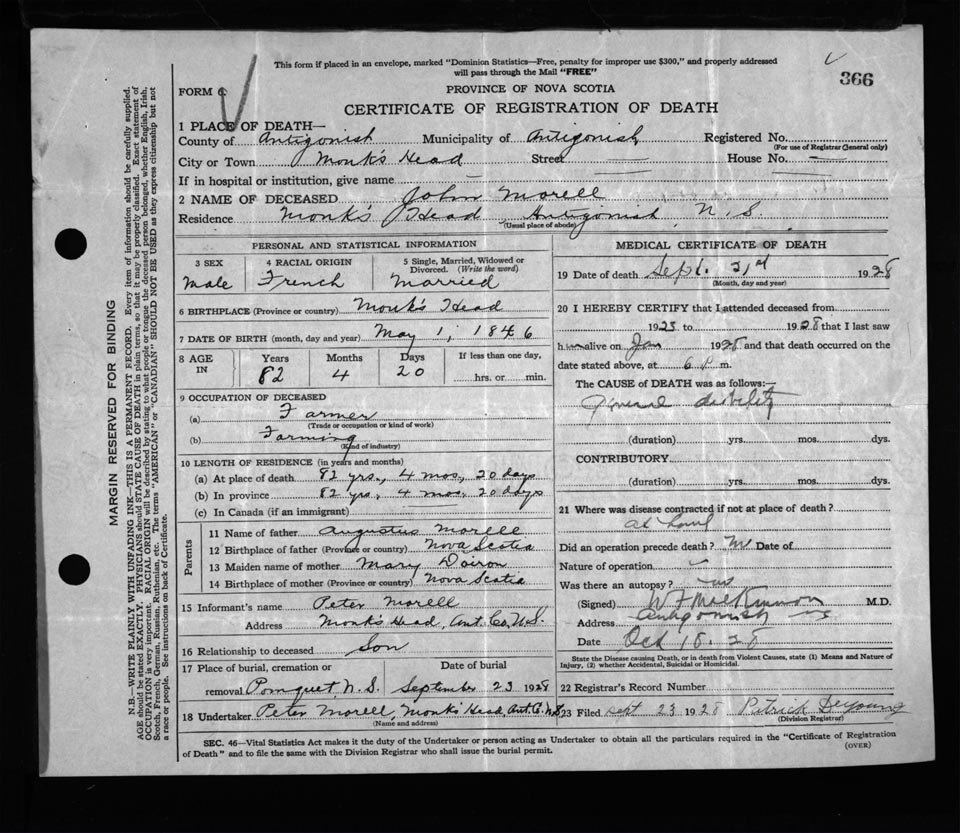 This form if placed in an envelope, marked "Dominion Statistics—Free, penalty for improper use $300," and properly addressed
will pass through the Mail "FREE"
366
FORM 6
PROVINCE OF NOVA SCOTIA
CERTIFICATE OF REGISTRATION OF DEATH
1 PLACE OF DEATH—
County of Antigonish Municipality of Antigonish Registered No.
(For use of Registrar General only)
City or Town Monk's Head Street — House No. —
If in hospital or institution, give name —
2 NAME OF DECEASED John Morell
Residence Monk's Head Antigonish N.S.
(Usual place of abode)
PERSONAL AND STATISTICAL INFORMATION
3 SEX Male
4 RACIAL ORIGIN French
5 Single, Married, Widowed or Divorced. (Write the word) Married
6 BIRTHPLACE (Province or country) Monk's Head
7 DATE OF BIRTH (month, day and year) May 1, 1846
8 AGE IN Years 82 Months 4 Days 20 If less than one day, hrs. or min.
9 OCCUPATION OF DECEASED
(a) Farmer
(Trade or occupation or kind of work)
(b) Farming
(Kind of industry)
10 LENGTH OF RESIDENCE (in years and months)
(a) At place of death 82 yrs., 4 mos, 20 days
(b) In province 82 yrs, 4 mos, 20 days
(c) In Canada (if an immigrant)
Parents
11 Name of father Augustus Morell
12 Birthplace of father (Province or country) Nova Scotia
13 Maiden name of mother Mary Doiron
14 Birthplace of mother (Province or country) Nova Scotia
15 Informant's name Peter Morell
Address Monk's Head, Ant. Co. N.S.
16 Relationship to deceased Son
17 Place of burial, cremation or Date of burial
removal Pomquet N.S. September 23 1928
18 Undertaker Peter Morell, Monk's Head Ant. C. N.S.
(Name and address)
MEDICAL CERTIFICATE OF DEATH
19 Date of death Sept. 21st 1928
(Month, day and year)
20 I HEREBY CERTIFY that I attended deceased from
1928 to 1928 that I last saw
him alive on Jan 1928 and that death occurred on the
date stated above, at 6 P m.
The CAUSE OF DEATH was as follows:—
General debility
(duration) yrs. mos. dys.
CONTRIBUTORY
(duration) yrs. mos. dys.
21 Where was disease contracted if not at place of death?
at home
Did an operation precede death? No Date of
Nature of operation
Was there an autopsy? no
(Signed) W F MacKinnon M.D.
Address Antigonish NS
Date Oct 18. 28
State the Disease causing Death, or in death from Violent Causes, state (1) Means and Nature of
Injury, (2) whether Accidental, Suicidal or Homicidal.
22 Registrar's Record Number
23 Filed Sept 23 1928 Patrick DeYoung
(Division Registrar)
SEC. 46—Vital Statistics Act makes it the duty of the Undertaker or person acting as Undertaker to obtain all the particulars required in the "Certificate of Registration
of Death" and to file the same with the Division Registrar who shall issue the burial permit.
(OVER)
MARGIN RESERVED FOR BINDING
N.B.—WRITE PLAINLY WITH UNFADING INK—THIS IS A PERMANENT RECORD. Every item of information should be carefully supplied.
AGE should be stated EXACTLY. PHYSICIANS should STATE CAUSE OF DEATH in plain terms, so that it may be properly classified. Exact statement of
OCCUPATION is very important. RACIAL ORIGIN will be described by stating to what people or tongue the deceased person belonged, whether English, Irish,
Scotch, French, German, Russian, Ruthenian, etc. The terms "AMERICAN" or "CANADIAN" SHOULD NOT BE USED as they express citizenship but not
a race or people. See instructions on back of Certificate.